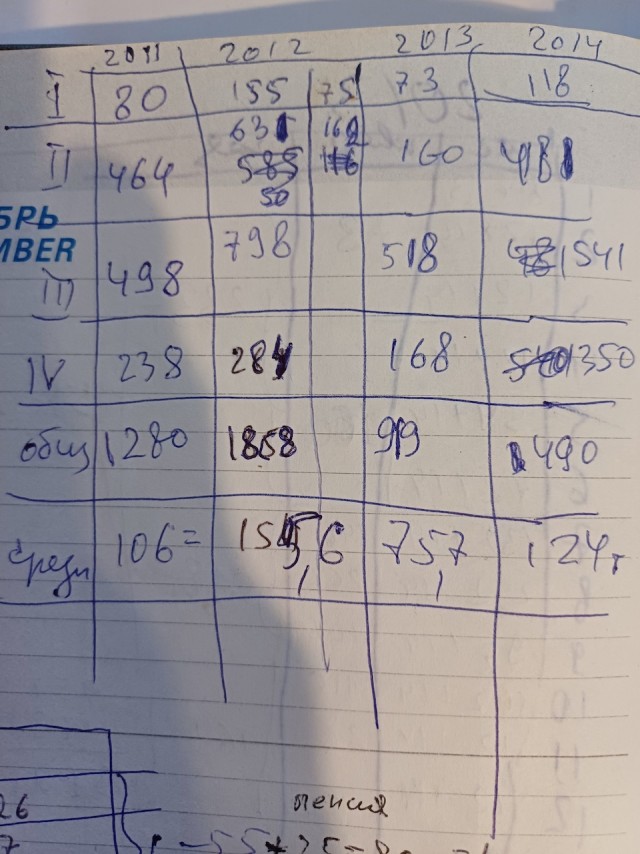 2011 2012 2013 2014
I 80 155 75 73 118
II 464 631 162 160 481
585 116
50
БРЬ
MBER
III 498 798 518 541
IV 238 284 168 350
общ 1280 1868 919 1490
средн 106= 154,6 75,7 124,
26
пенсия
7